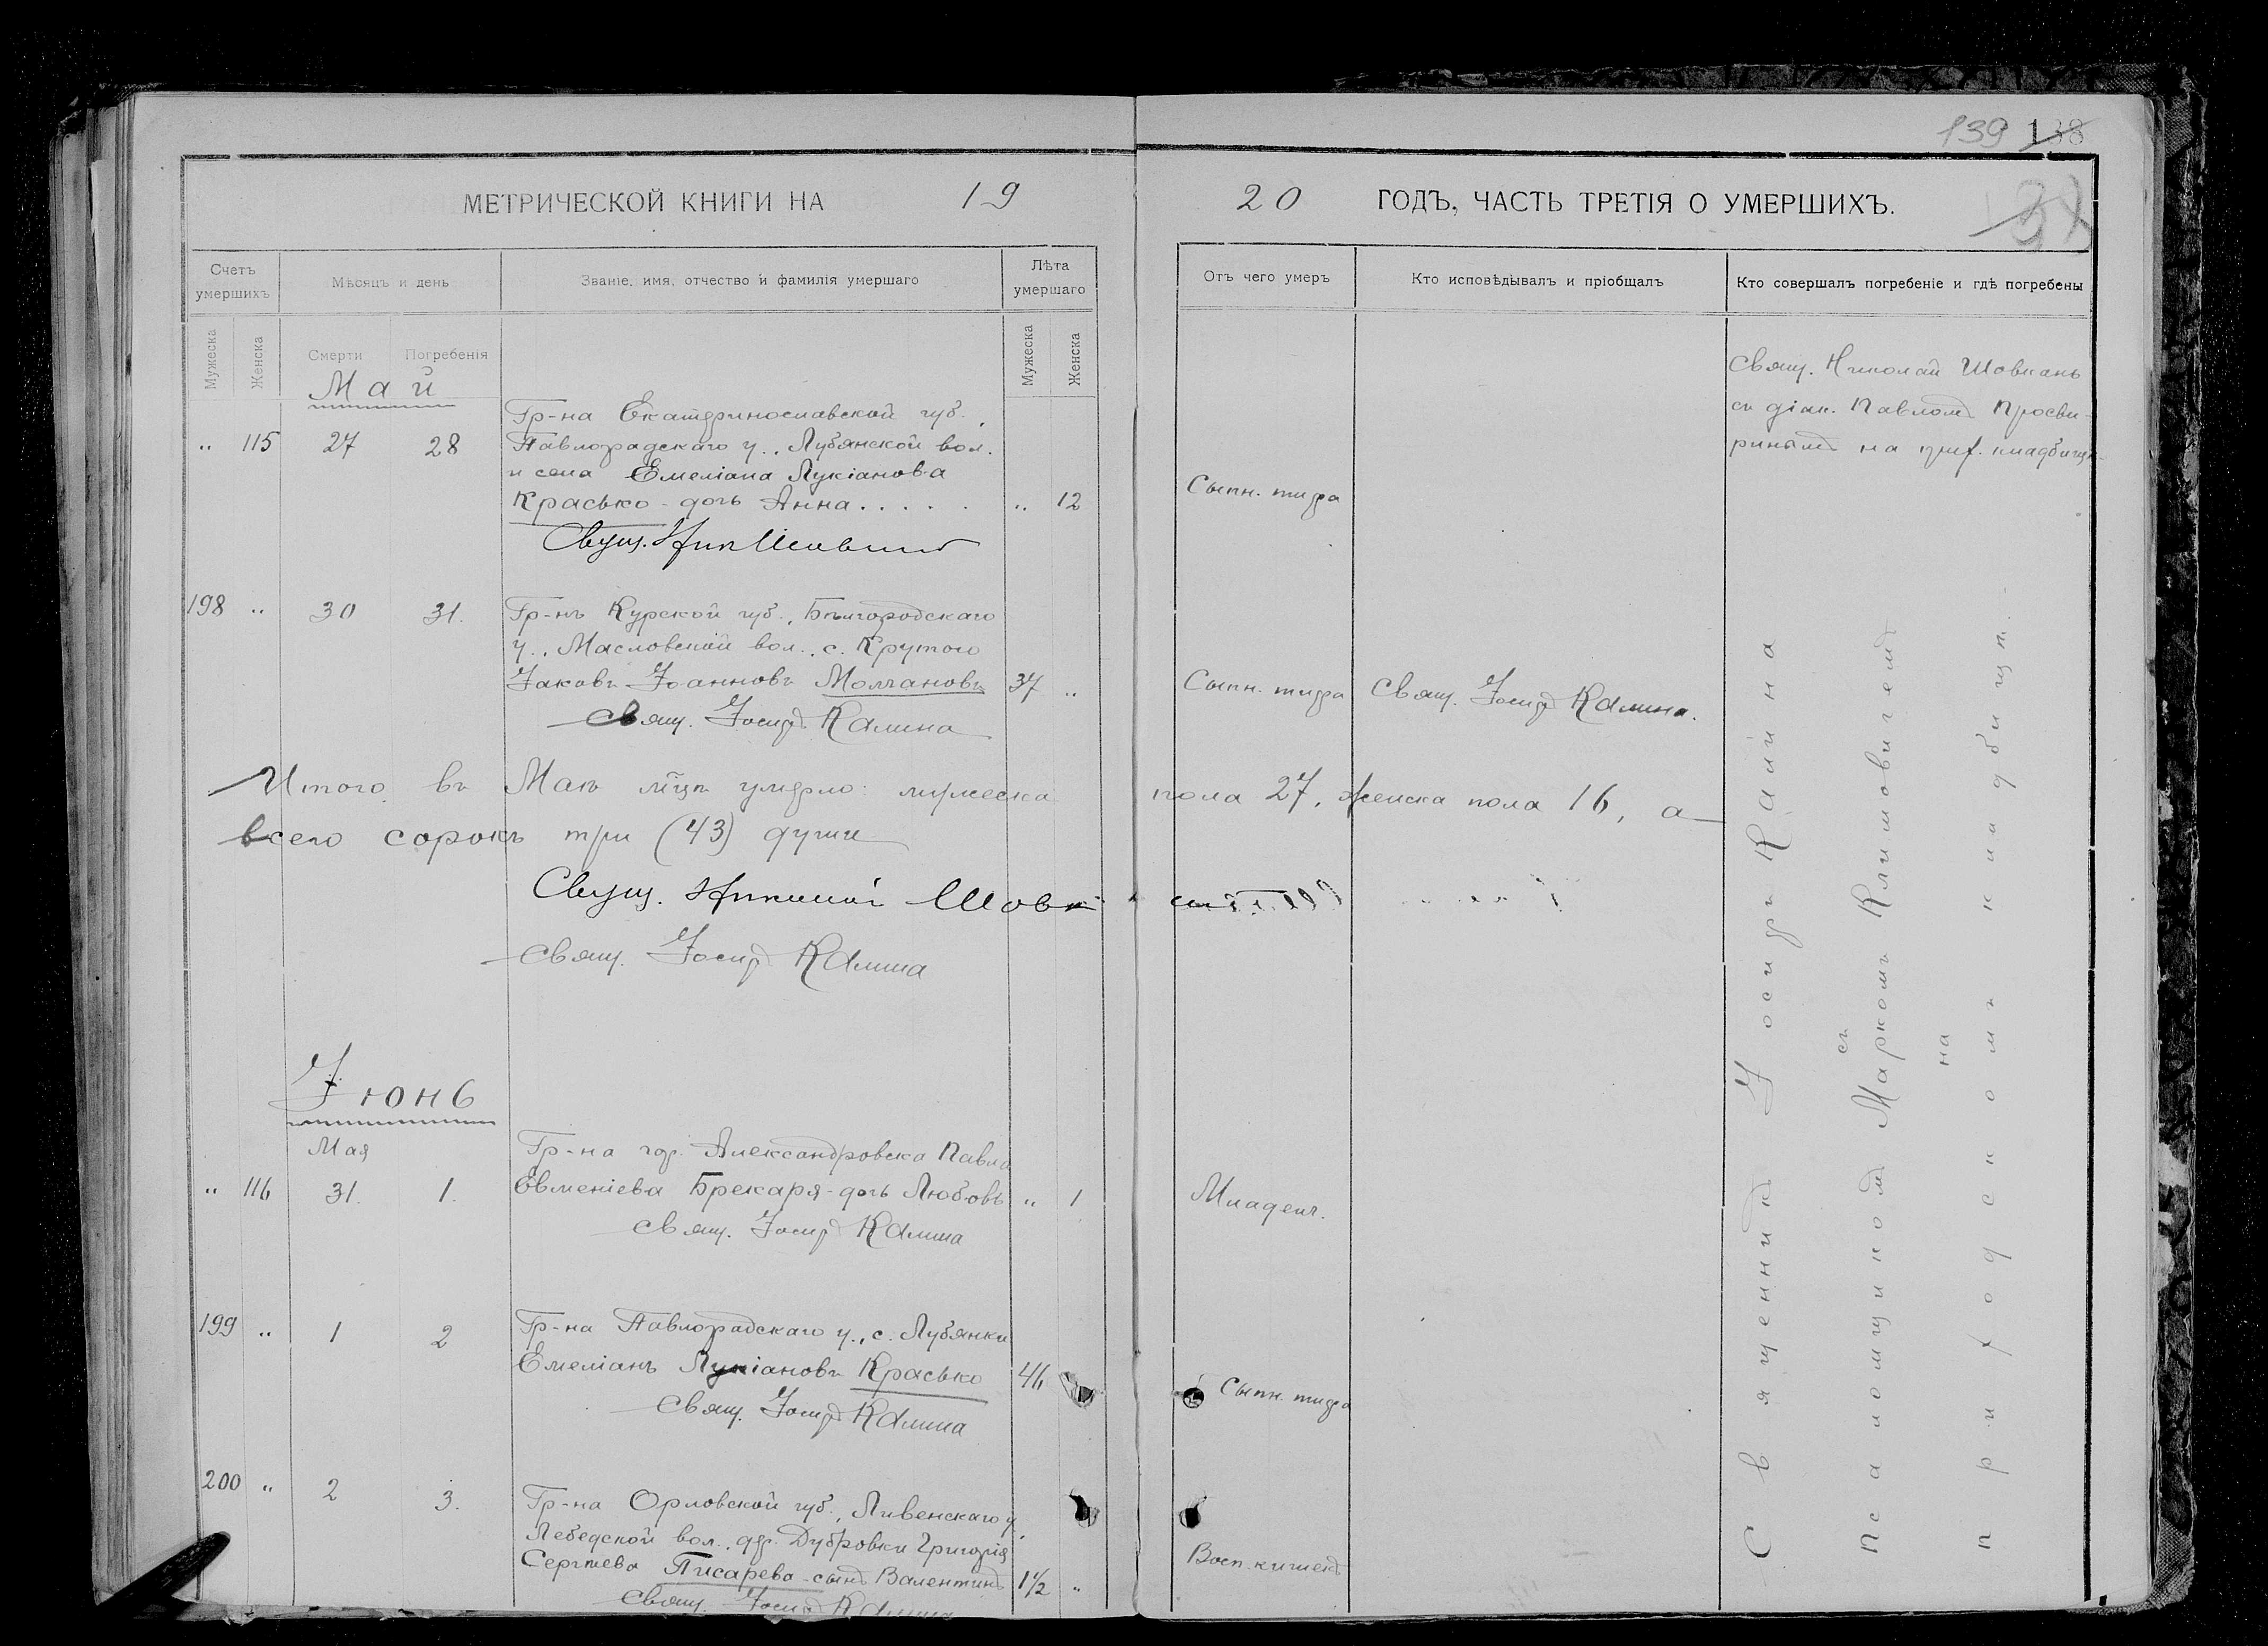 139 138
МЕТРИЧЕСКОЙ КНИГИ НА 19 20 ГОДЪ, ЧАСТЬ ТРЕТІЯ О УМЕРШИХЪ.
Счетъ умершихъ
Мѣсяцъ и день
Званіе, имя, отчество и фамилія умершаго
Лѣта умершаго
Отъ чего умеръ
Кто исповѣдывалъ и пріобщалъ
Кто совершалъ погребеніе и гдѣ погребены
Мужеска
Женска
Смерти
Погребенія
Мужеска
Женска
Май
„ 115 27 28
Гр-на Екатеринославской губ.,
Павлоградскаго у., Лубянской вол.
и села Емеліана Лукіанова
Красько - дочь Анна . . . . . „ 12
Сыпн. тифа
Свящ. Николай Шовкань
съ діак. Павломъ Просви-
ринымъ на прих. кладбищѣ
198 „ 30 31.
Гр-нъ Курской губ., Бѣлгородскаго
у., Масловской вол., с. Крутого
Іаковъ Іоанновъ Молчановъ 37 „
Сыпн. тифа
Свящ. Іосифъ Калина.
Свящ. Іосифъ Калина
Итого въ Маѣ м҃цѣ умерло: мужеска пола 27, женска пола 16, а
всего сорокъ три (43) души
Свящ. Николай Шовкань
Свящ. Іосифъ Калина
Іюнь
Мая
„ 116 31. 1.
Гр-на гор. Александровска Павла
Евменіева Брекаря - дочь Любовь „ 1
Младенч.
Свящ. Іосифъ Калина
199 „ 1 2
Гр-на Павлоградскаго у., с. Лубянки
Емеліанъ Лукіановъ Красько 46
Сыпн. тифа
Свящ. Іосифъ Калина
200 „ 2 3.
Гр-на Орловской губ., Ливенскаго у.,
Лебедской вол., дер. Дубровки Григорія
Сергѣева Писарева - сынъ Валентинъ 1½ „
Восп. кишекъ
Свящ. Іосифъ Калина
Священникъ Іосифъ Калина
съ
Псаломщикомъ Маркомъ Климовичемъ
на
приходскомъ кладбищѣ.